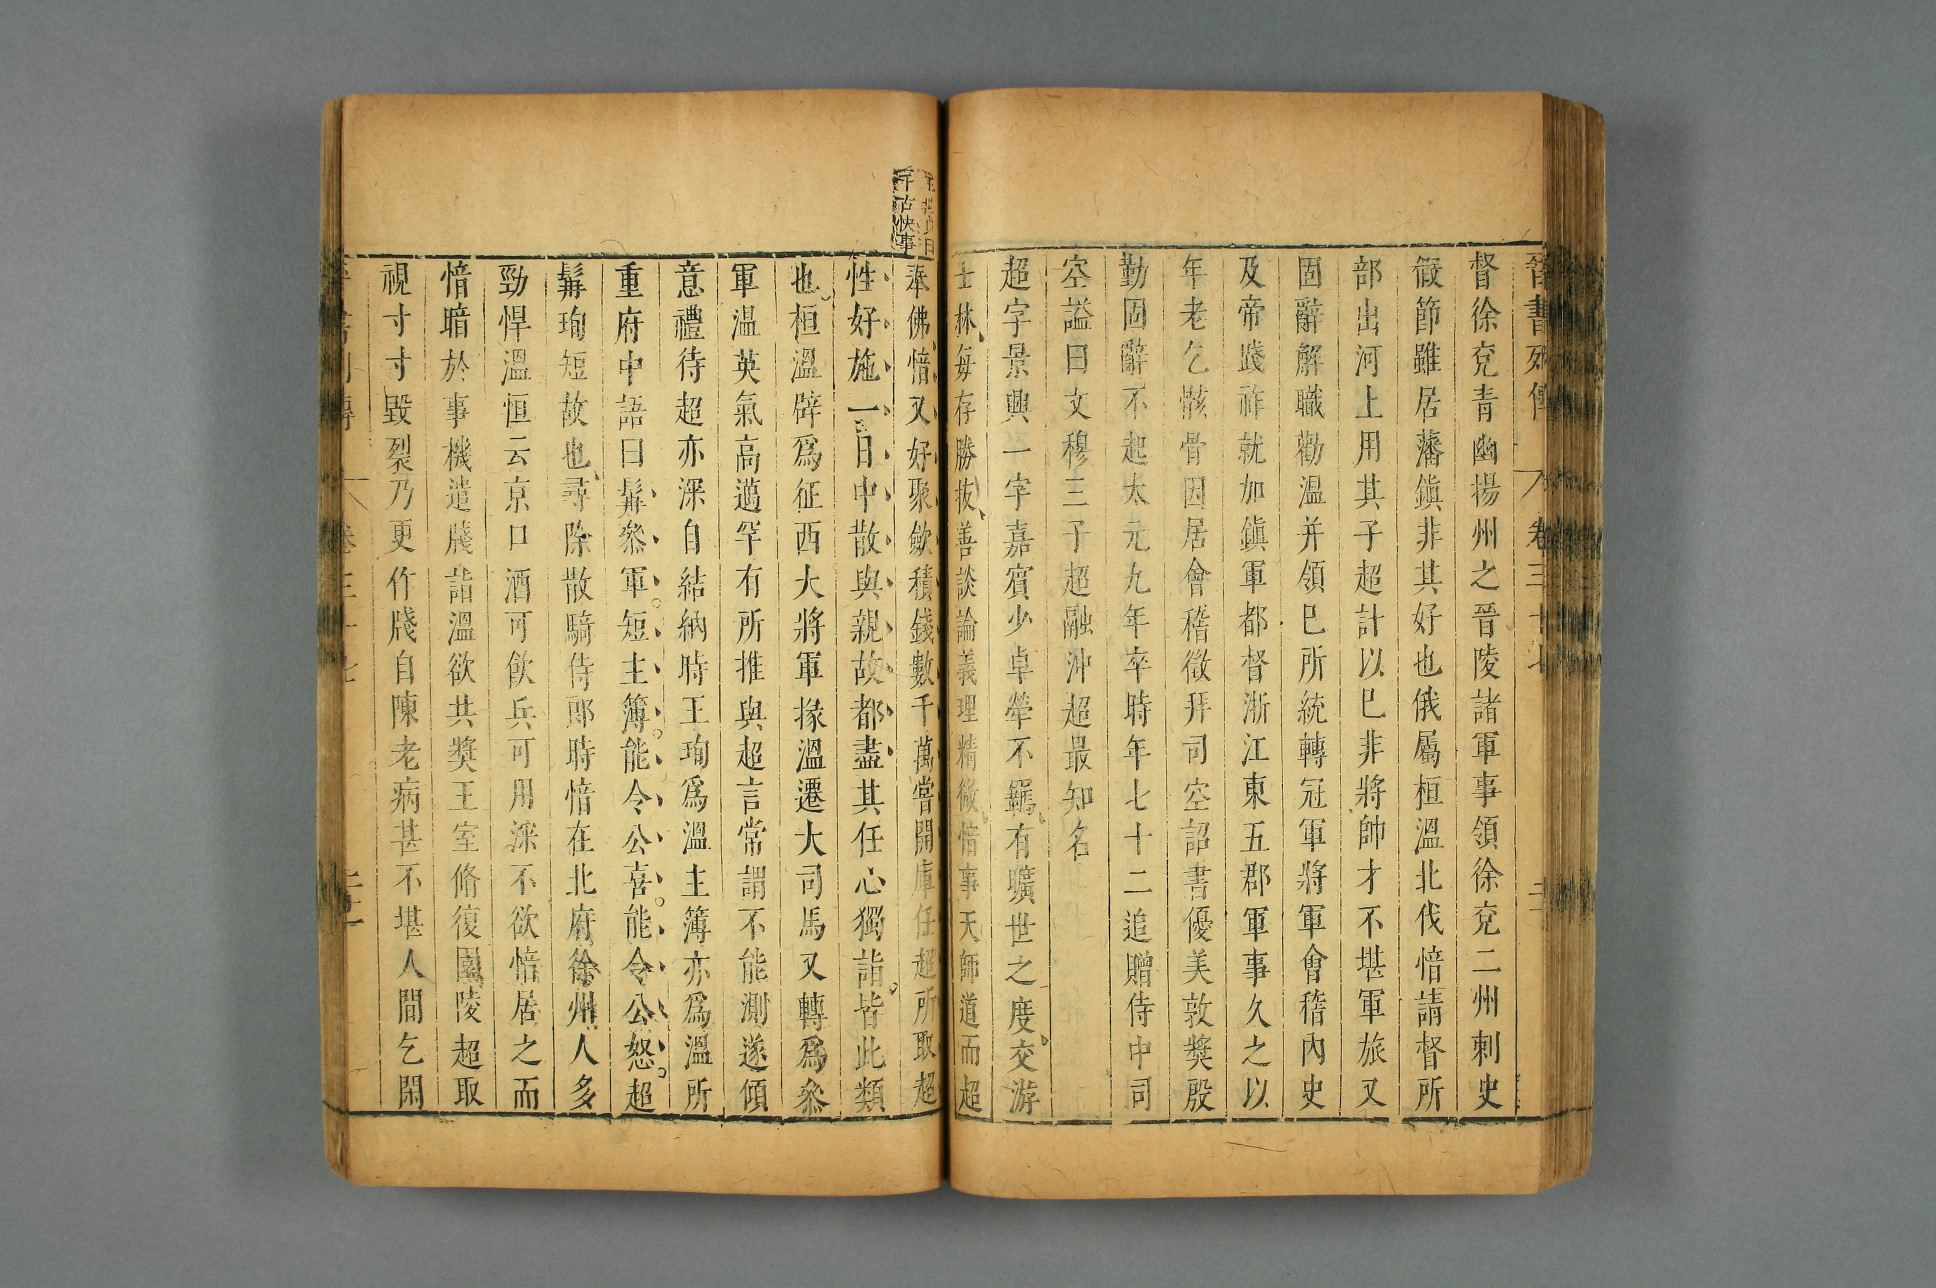 晉書列傳 卷三十七 二十
督徐兗青幽揚州之晉陵諸軍事領徐兗二州刺史
假節雖居藩鎮非其好也俄屬桓溫北伐愔請督所
部出河上用其子超計以巳非將帥才不堪軍旅又
固辭解職勸溫并領巳所統轉冠軍將軍會稽內史
及帝踐祚就加鎮軍都督浙江東五郡軍事久之以
年老乞骸骨因居會稽徵拜司空詔書優美敦獎殷
勤固辭不起太元九年卒時年七十二追贈侍中司
空謚曰文穆三子超融沖超最知名
超字景興一字嘉賓少卓犖不羈有曠世之度交游
士林每存勝拔善談論義理精微愔事天師道而超
奉佛愔又好聚歛積錢數千萬嘗開庫任超所取超
性好施一日中散與親故都盡其任心獨詣皆此類
也桓溫辟爲征西大將軍掾溫遷大司馬又轉爲叅
軍溫英氣高邁罕有所推與超言常謂不能測遂傾
意禮待超亦深自結納時王珣爲溫主簿亦爲溫所
重府中語曰髯叅軍短主簿能令公喜能令公怒超
髯珣短故也尋除散騎侍郎時愔在北府徐州人多
勁悍溫恒云京口酒可飲兵可用深不欲愔居之而
愔暗於事機遣牋詣溫欲共獎王室脩復園陵超取
視寸寸毀裂乃更作牋自陳老病甚不堪人間乞閑
千古快事